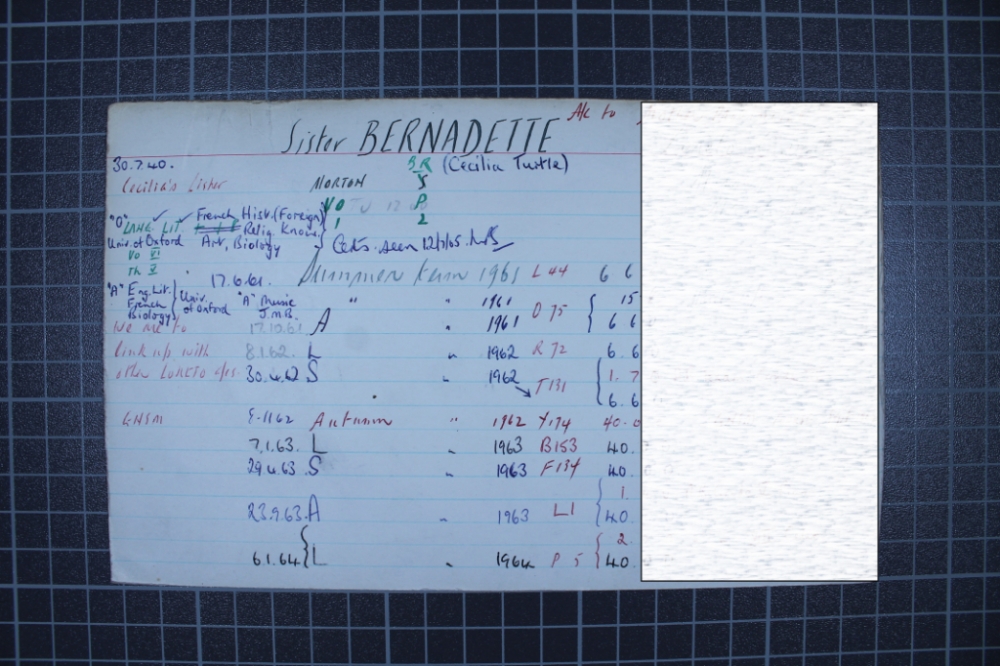 A/c to
Sister BERNADETTE
30.7.40. SR (Cecilia Turtle)
Cecilia's Sister MORTON S
"O" LANG. LIT. French Hist. (Foreign) VO P
Univ. of Oxford Relig. Know. 1 2
Art, Biology Certs. seen
Vo VI
Th V
17.6.61. Summer term 1961 L 44 6 6
"A" Eng. Lit. French Biology Univ. of Oxford "A" Music J.M.B. " " 1961 O 75 15
17.10.61 A " 1961 6 6
link up with 8.1.62. L " 1962 R 72 6. 6
other LORETO a/cs 30.4.62 S " 1962 T131 1. 7
6. 6
GNSM Autumn " 1962 Y174 40-0
7.1.63. L " 1963 B153 40.
29.4.63 S " 1963 F134 40.
1.
23.9.63. A " 1963 L1 40.
2.
6.1.64 L " 1964 P 5 40.